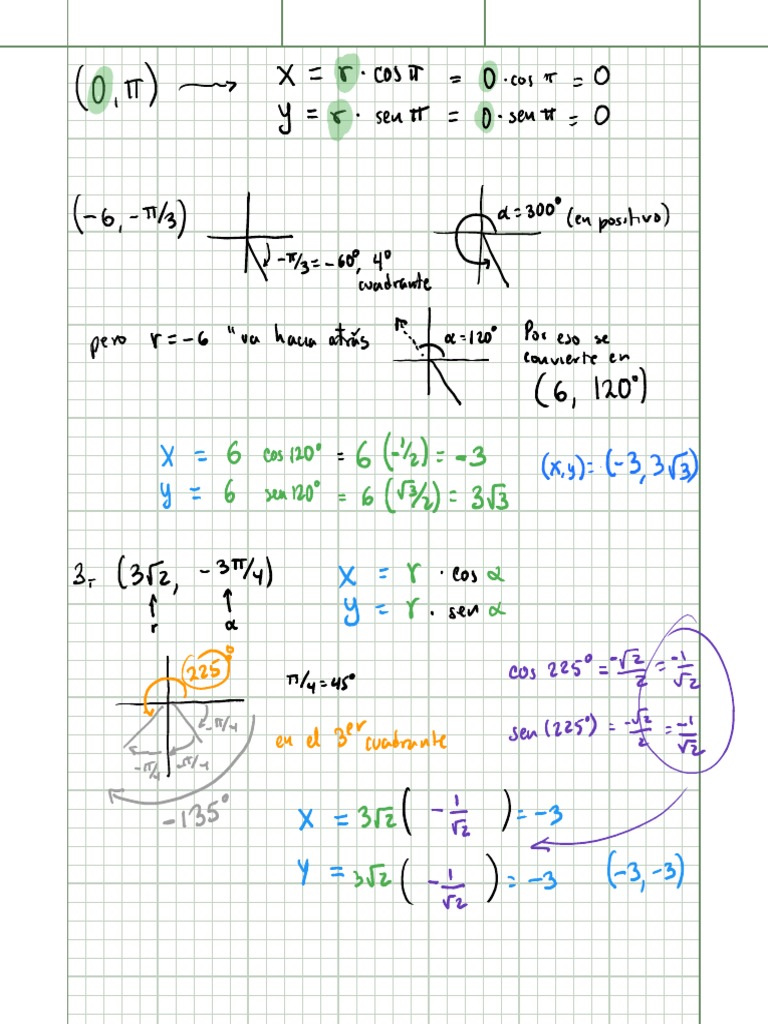 (0, π) → x = r · cos π = 0 · cos π = 0
y = r · sen π = 0 · sen π = 0
(-6, -π/3)
-π/3 = -60°, 4°
cuadrante
α = 300° (en positivo)
pero r = -6 "va hacia atrás
α = 120°
Por eso se
convierte en
(6, 120°)
x = 6 cos 120° = 6 (-1/2) = -3
y = 6 sen 120° = 6 (√3/2) = 3√3
(x,y) = (-3, 3√3)
3. (3√2, -3π/4)
r α
x = r · cos α
y = r · sen α
225°
-π/4
-π/4 -π/4
-135°
π/4 = 45°
en el 3er cuadrante
cos 225° = -√2/2 = -1/√2
sen (225°) = -√2/2 = -1/√2
x = 3√2 ( -1/√2 ) = -3
y = 3√2 ( -1/√2 ) = -3 (-3, -3)